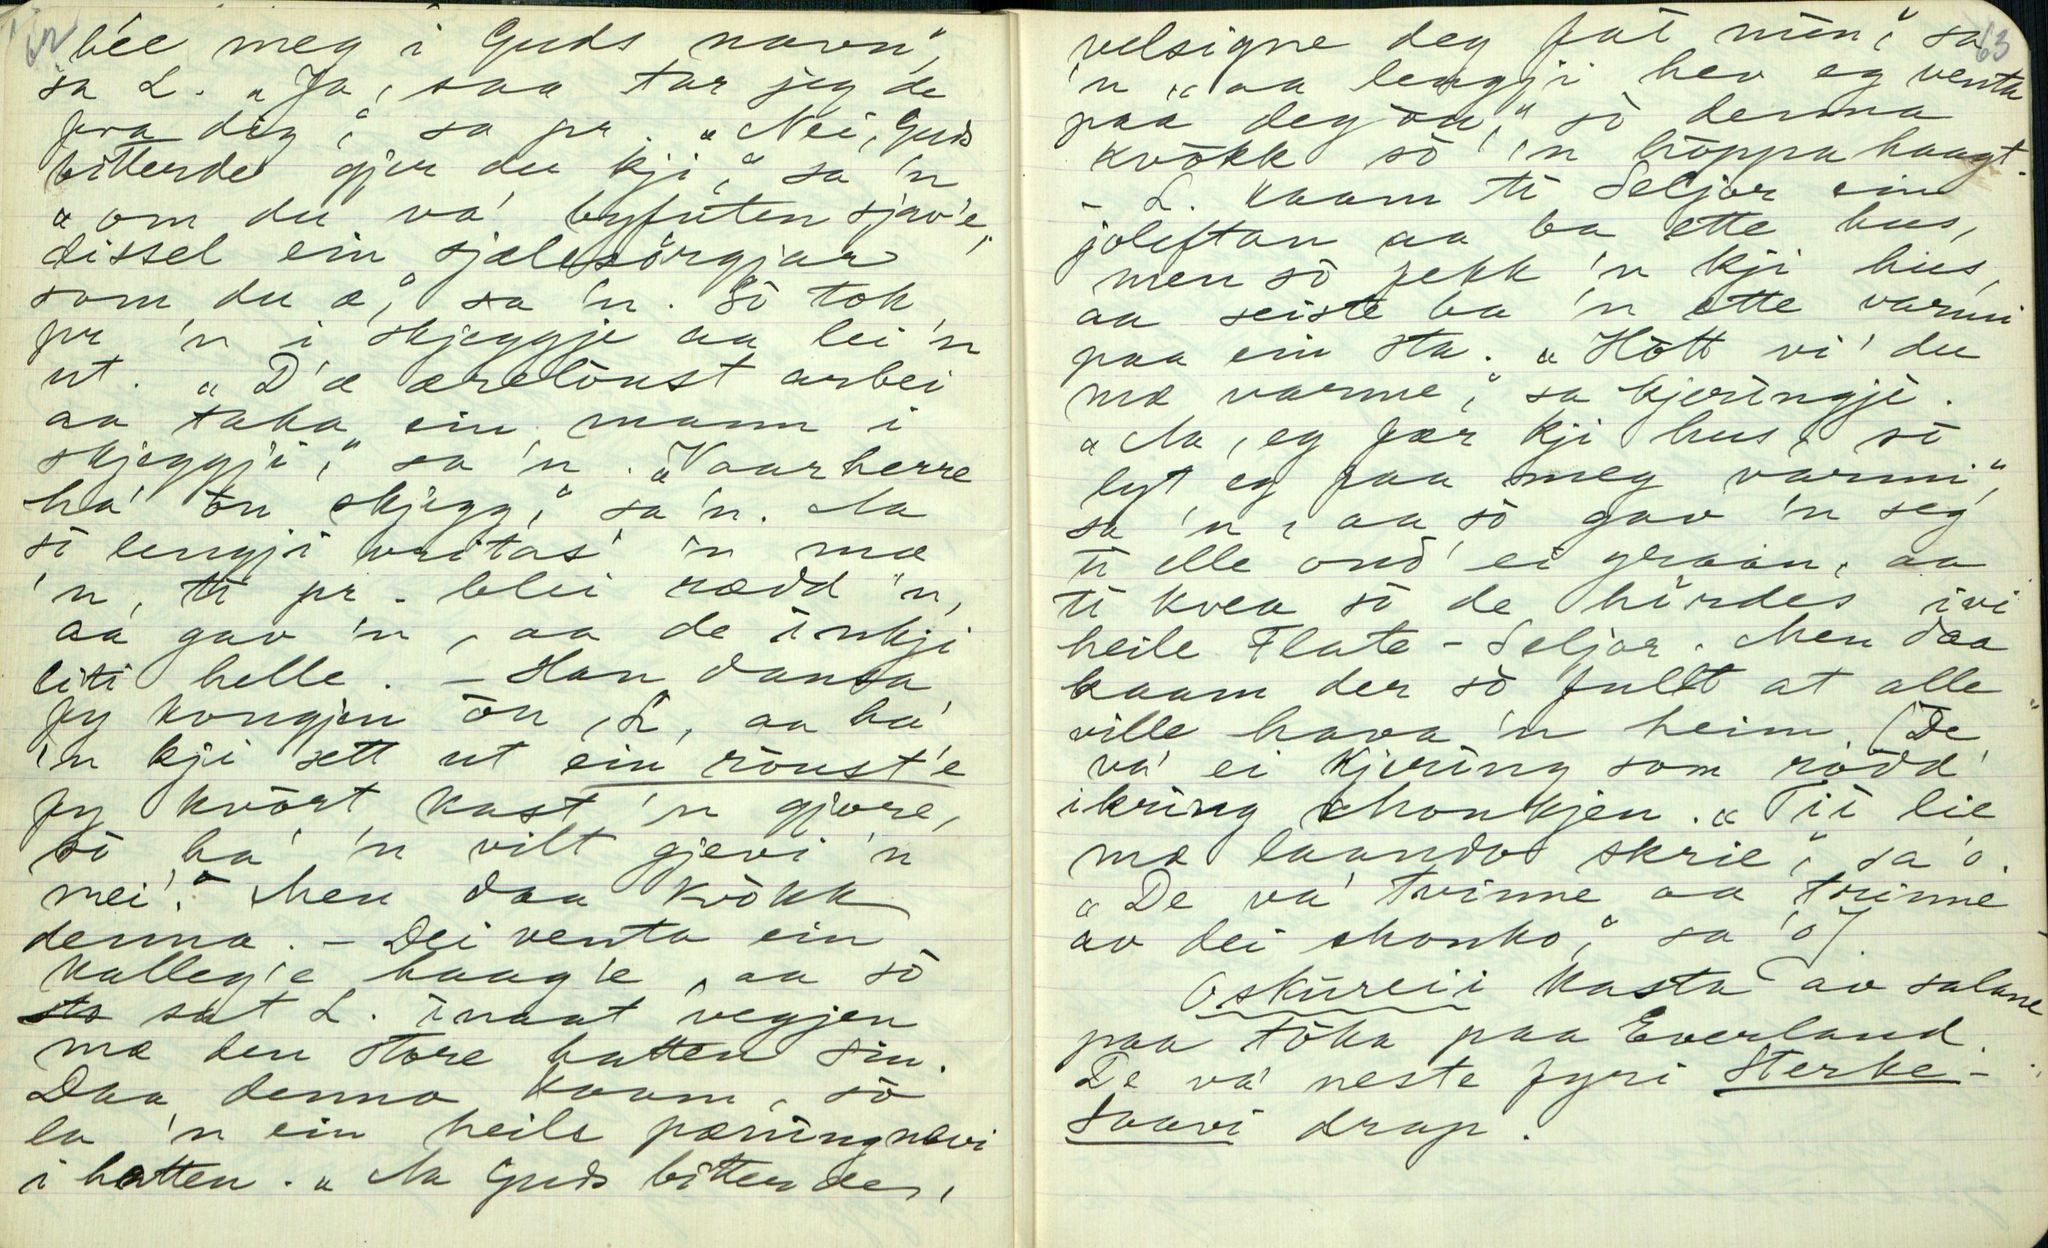 62
bée meg i Guds navn",
sa L. "Ja, saa tar jeg de
fra dig", sa pr. "Nei, Guds
bitterde gjer du kji", sa 'n
"om du va' byfuten sjøv'e,
dissel ein sjælesörgjar
som du æ", sa 'n. Sö tok
pr 'n i skjeggje aa lei 'n
ut. "D'æ ærelöust arbei
aa taka ein mann i
skjeggji," sa 'n. "Vaarherre
ha' òu skjegg," sa 'n. Aa
sö lengji vritas' 'n mæ
'n, ti pr. blei rædd 'n,
aa gav 'n, aa de inkji
liti helle. - Han dansa
fy kongjen òu, L, aa ha'
'n kji sett ut ein röust'e
fy kvört kast 'n gjore,
sö ha' 'n vilt gjevi 'n
mei'." Men daa kvökk
denna. - Dei venta ein
kalleg'e haag'e, aa sö
sat L. innaat vegjen
mæ den store hatten sin.
Daa denna kaam, sö
la 'n ein heile pæningnævi
i hatten. "Aa Guds bitterder,
63
velsigne deg fat min," sa
'n, "aa lengji hev eg venta
paa deg òu," sö denna
kvökk sö 'n höppa haagt.
- L. kaam ti Seljor ein
joleftan aa ba ette hus,
men sö fekk 'n kji hus,
aa seiste ba 'n ette varmi
paa ein sta. "Hött vi' du
mæ varme," sa kjeringji.
"Aa, eg fær kji hus, sö
lyt eg faa meg varmi",
sa 'n, aa sö gav 'n seg
ti elle ond' ei graan, aa
ti kvea sö de hördes ivi
heile Flate-Seljor. Men daa
kaam der sö fullt at alle
ville hava 'n heim. (De
va' ei kjering som rödd'
ikring skonkjen. "Tii lie
mæ laandos skrie," sa 'o.
"De va' tvinne aa trinne
av dei skonko," sa 'o)
Oskureii kasta av salane
paa töka paa Everland.
De va' neste fyri Sterke-
Saavi drap.